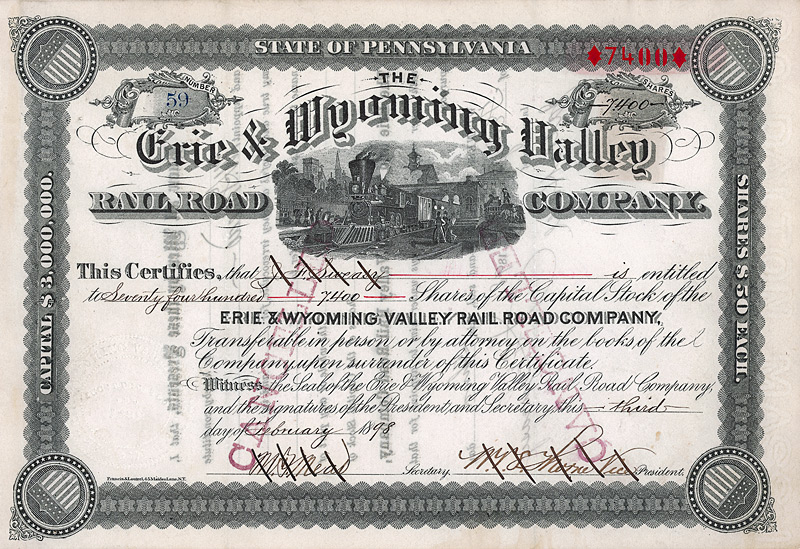 STATE OF PENNSYLVANIA
♦7400♦
NUMBER
59
SHARES
7400
THE
Erie & Wyoming Valley
RAIL ROAD COMPANY.
CAPITAL $3,000,000.
SHARES $50 EACH.
This Certifies, that J. F. Swear is entitled
to Seventy four hundred 7400 Shares of the Capital Stock of the
ERIE & WYOMING VALLEY RAIL ROAD COMPANY,
Transferable in person or by attorney on the books of the
Company upon surrender of this Certificate.
Witness, the Seal of the Erie & Wyoming Valley Rail Road Company,
and the signatures of the President and Secretary this third
day of February 1898
Mead Secretary. Vice President.
Francis & Loutrel, 45 Maiden Lane, N.Y.
CANCELLED